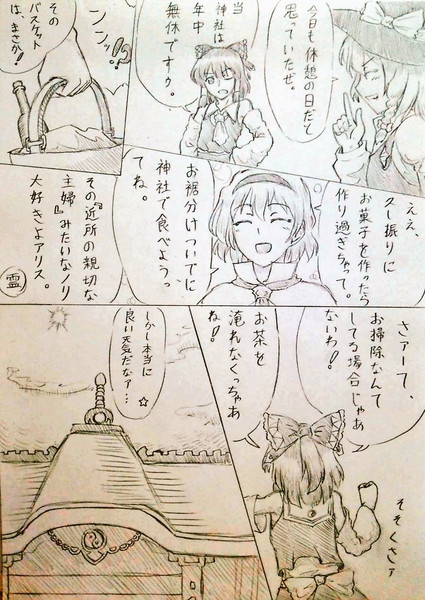 今日も休憩の日だと
思っていたぜ。
当
神社は
年中
無休ですケ。
ンンッ!?
その
バスケット
は、まさか!
ええ、
久し振りに
お菓子を作ったら
作り過ぎちゃって。
お裾分けついでに
神社で食べようっ
てね。
その『近所の親切な
主婦』みたいなノリ
大好きよアリス。
霊
さァーて、
お掃除なんて
してる場合じゃあ
ないわ!
お茶を
淹れなくっちゃあ
ね!
そそくさァ
しかし本当に
良い天気だなァ…
☆